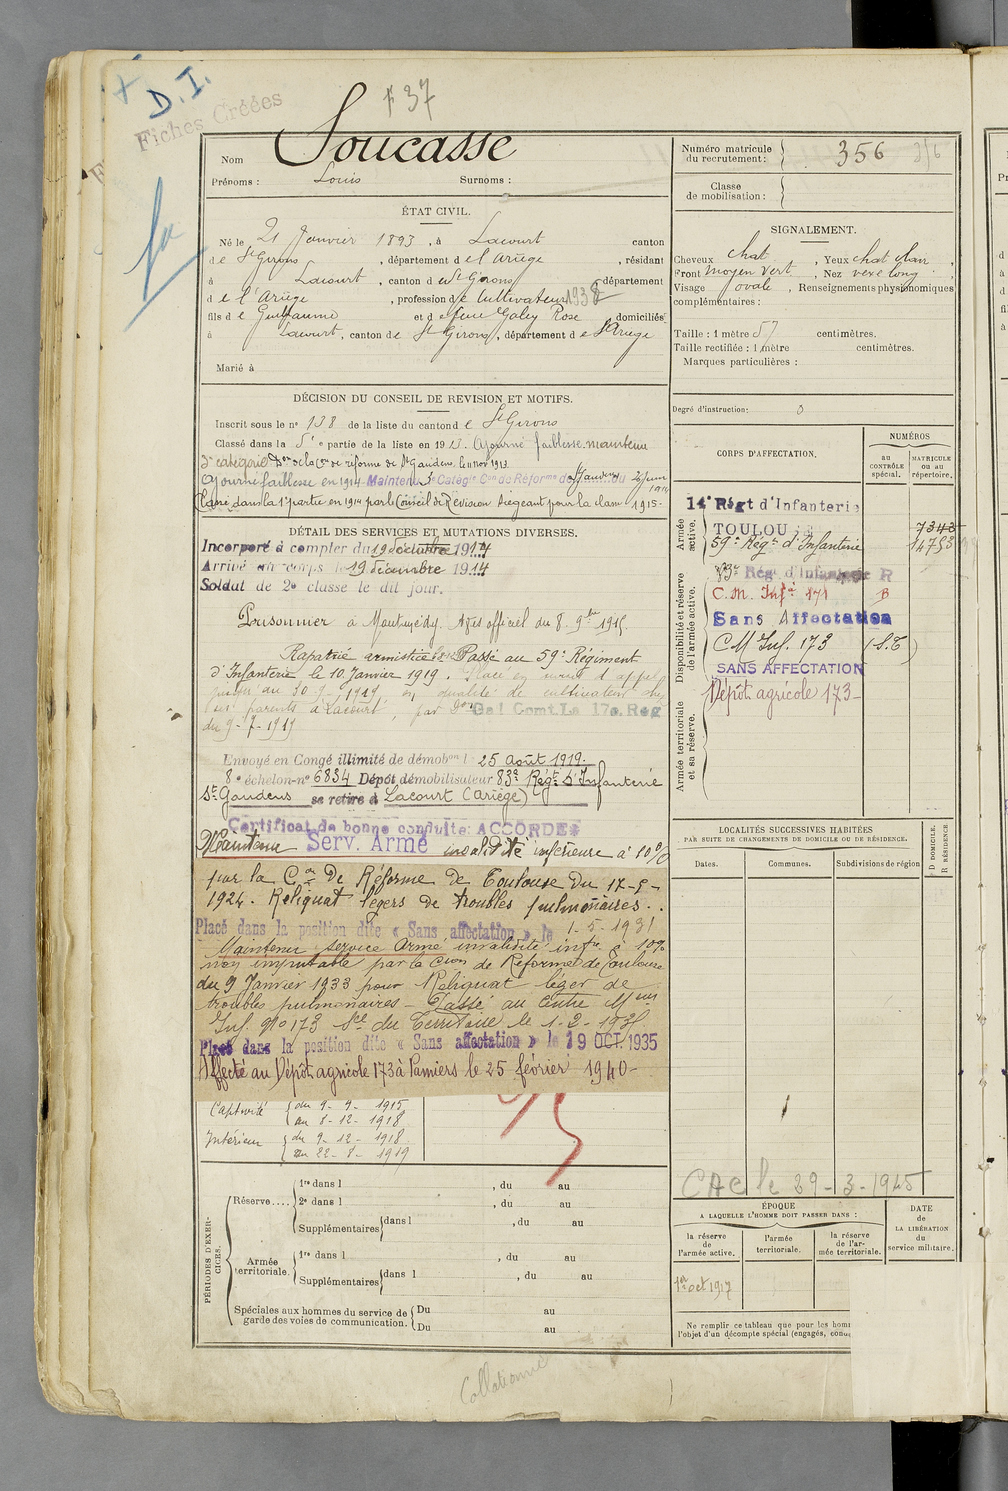 D. I.
Fiches Créées
F 37
Nom Soucasse
Prénoms : Louis Surnoms :
ÉTAT CIVIL.
Né le 21 Janvier 1893, à Lacourt canton
de St Girons, département de l'Ariège, résidant
à Lacourt, canton de St Girons département
de l'Ariège, profession de Cultivateur 1938
fils de Guillaume et de feue Galey Rose domiciliés
à Lacourt, canton de St Girons, département de l'Ariège
Marié à
DÉCISION DU CONSEIL DE REVISION ET MOTIFS.
Inscrit sous le n° 138 de la liste du canton de St Girons
Classé dans la 5e partie de la liste en 1913. Ajourné faiblesse. maintenu
3e catégorie Don de la Con de réforme de St Gaudens le 11 nov 1913
Ajourné faiblesse en 1914 Maintenu Catégie Con de Réforme de St Gaudens du 2 Juin
1914
Classé dans la 1e partie en 1914 par le Conseil de Revision siégeant pour la classe 1915.
DÉTAIL DES SERVICES ET MUTATIONS DIVERSES.
Incorporé à compter du 19 décembre 1914
Arrivé au corps le 19 décembre 1914
Soldat de 2e classe le dit jour.
Prisonnier à Montmédy. Avis officiel du 8. 9bre 1915.
Rapatrié armistice Passé au 59e Régiment
d'Infanterie le 10 Janvier 1919. Placé en sursis d'appel
jusqu'au 30-9-1919 en qualité de cultivateur chez
ses parents à Lacourt, par Don Gal Comt La 17e Reg
du 9-7-1919
Envoyé en Congé illimité de démobon l 25 Août 1919.
8e échelon n° 6834 Dépôt démobilisateur 83e Regt d'Infanterie
St Gaudens se retire à Lacourt (Ariège)
Certificat de bonne conduite ACCORDÉ
Maintenu Serv. Armé invalidité inférieure à 10%
par la Con De Réforme de Toulouse Du 17-5-
1924. Reliquat légers de troubles pulmonaires.
Placé dans la position dite « Sans affectation » le 1-5-1931
Maintenu service Armé invalidité infre à 10%
non imputable par la Cion de Réforme de Toulouse
du 9 Janvier 1933 pour Reliquat léger de
troubles pulmonaires - Passé au Centre Mon
Inf. No 173 Sce du Territoire le 1-2-
Placé dans la position dite « Sans affectation » le 19 OCT. 1935
Affecté au Dépôt agricole 173 à Pamiers le 25 février 1940-
Captivité du 9-9-1915
au 8-12-1918
Intérieur du 9-12-1918
au 22-8-1919
PÉRIODES D'EXERCICES.
Réserve.... 1re dans l , du au
2e dans l , du au
Supplémentaires dans l , du au
Armée territoriale. 1re dans l , du au
Supplémentaires dans l , du au
Spéciales aux hommes du service de Du au
garde des voies de communication. Du au
Collationné
Numéro matricule
du recrutement : 356 356
Classe
de mobilisation :
SIGNALEMENT.
Cheveux chat , Yeux chat clair ,
Front moyen vert , Nez vexe long
Visage ovale , Renseignements physionomiques
complémentaires :
Taille : 1 mètre 57 centimètres.
Taille rectifiée : 1 mètre centimètres.
Marques particulières :
Degré d'instruction : 0
CORPS D'AFFECTATION.
NUMÉROS
au
CONTRÔLE
spécial.
MATRICULE
ou au
répertoire.
Armée
active.
14e Régt d'Infanterie
TOULOU 7343
59e Régt d'Infanterie 14753
Disponibilité et réserve
de l'armée active.
83e Rég. d'Infanterie R
C. M. Infie 171 B
Sans Affectation
CM Inf. 173 (S.T)
SANS AFFECTATION
Dépôt agricole 173-
Armée territoriale
et sa réserve.
LOCALITÉS SUCCESSIVES HABITÉES
PAR SUITE DE CHANGEMENTS DE DOMICILE OU DE RÉSIDENCE.
Dates.
Communes.
Subdivisions de région
D DOMICILE.
R RÉSIDENCE
CAC le 29-3-1945
ÉPOQUE
A LAQUELLE L'HOMME DOIT PASSER DANS :
DATE
de
LA LIBÉRATION
du
service militaire.
la réserve
de
l'armée active.
l'armée
territoriale.
la réserve
de l'ar-
mée territoriale.
1er oct 1917
Ne remplir ce tableau que pour les hom
l'objet d'un décompte spécial (engagés,